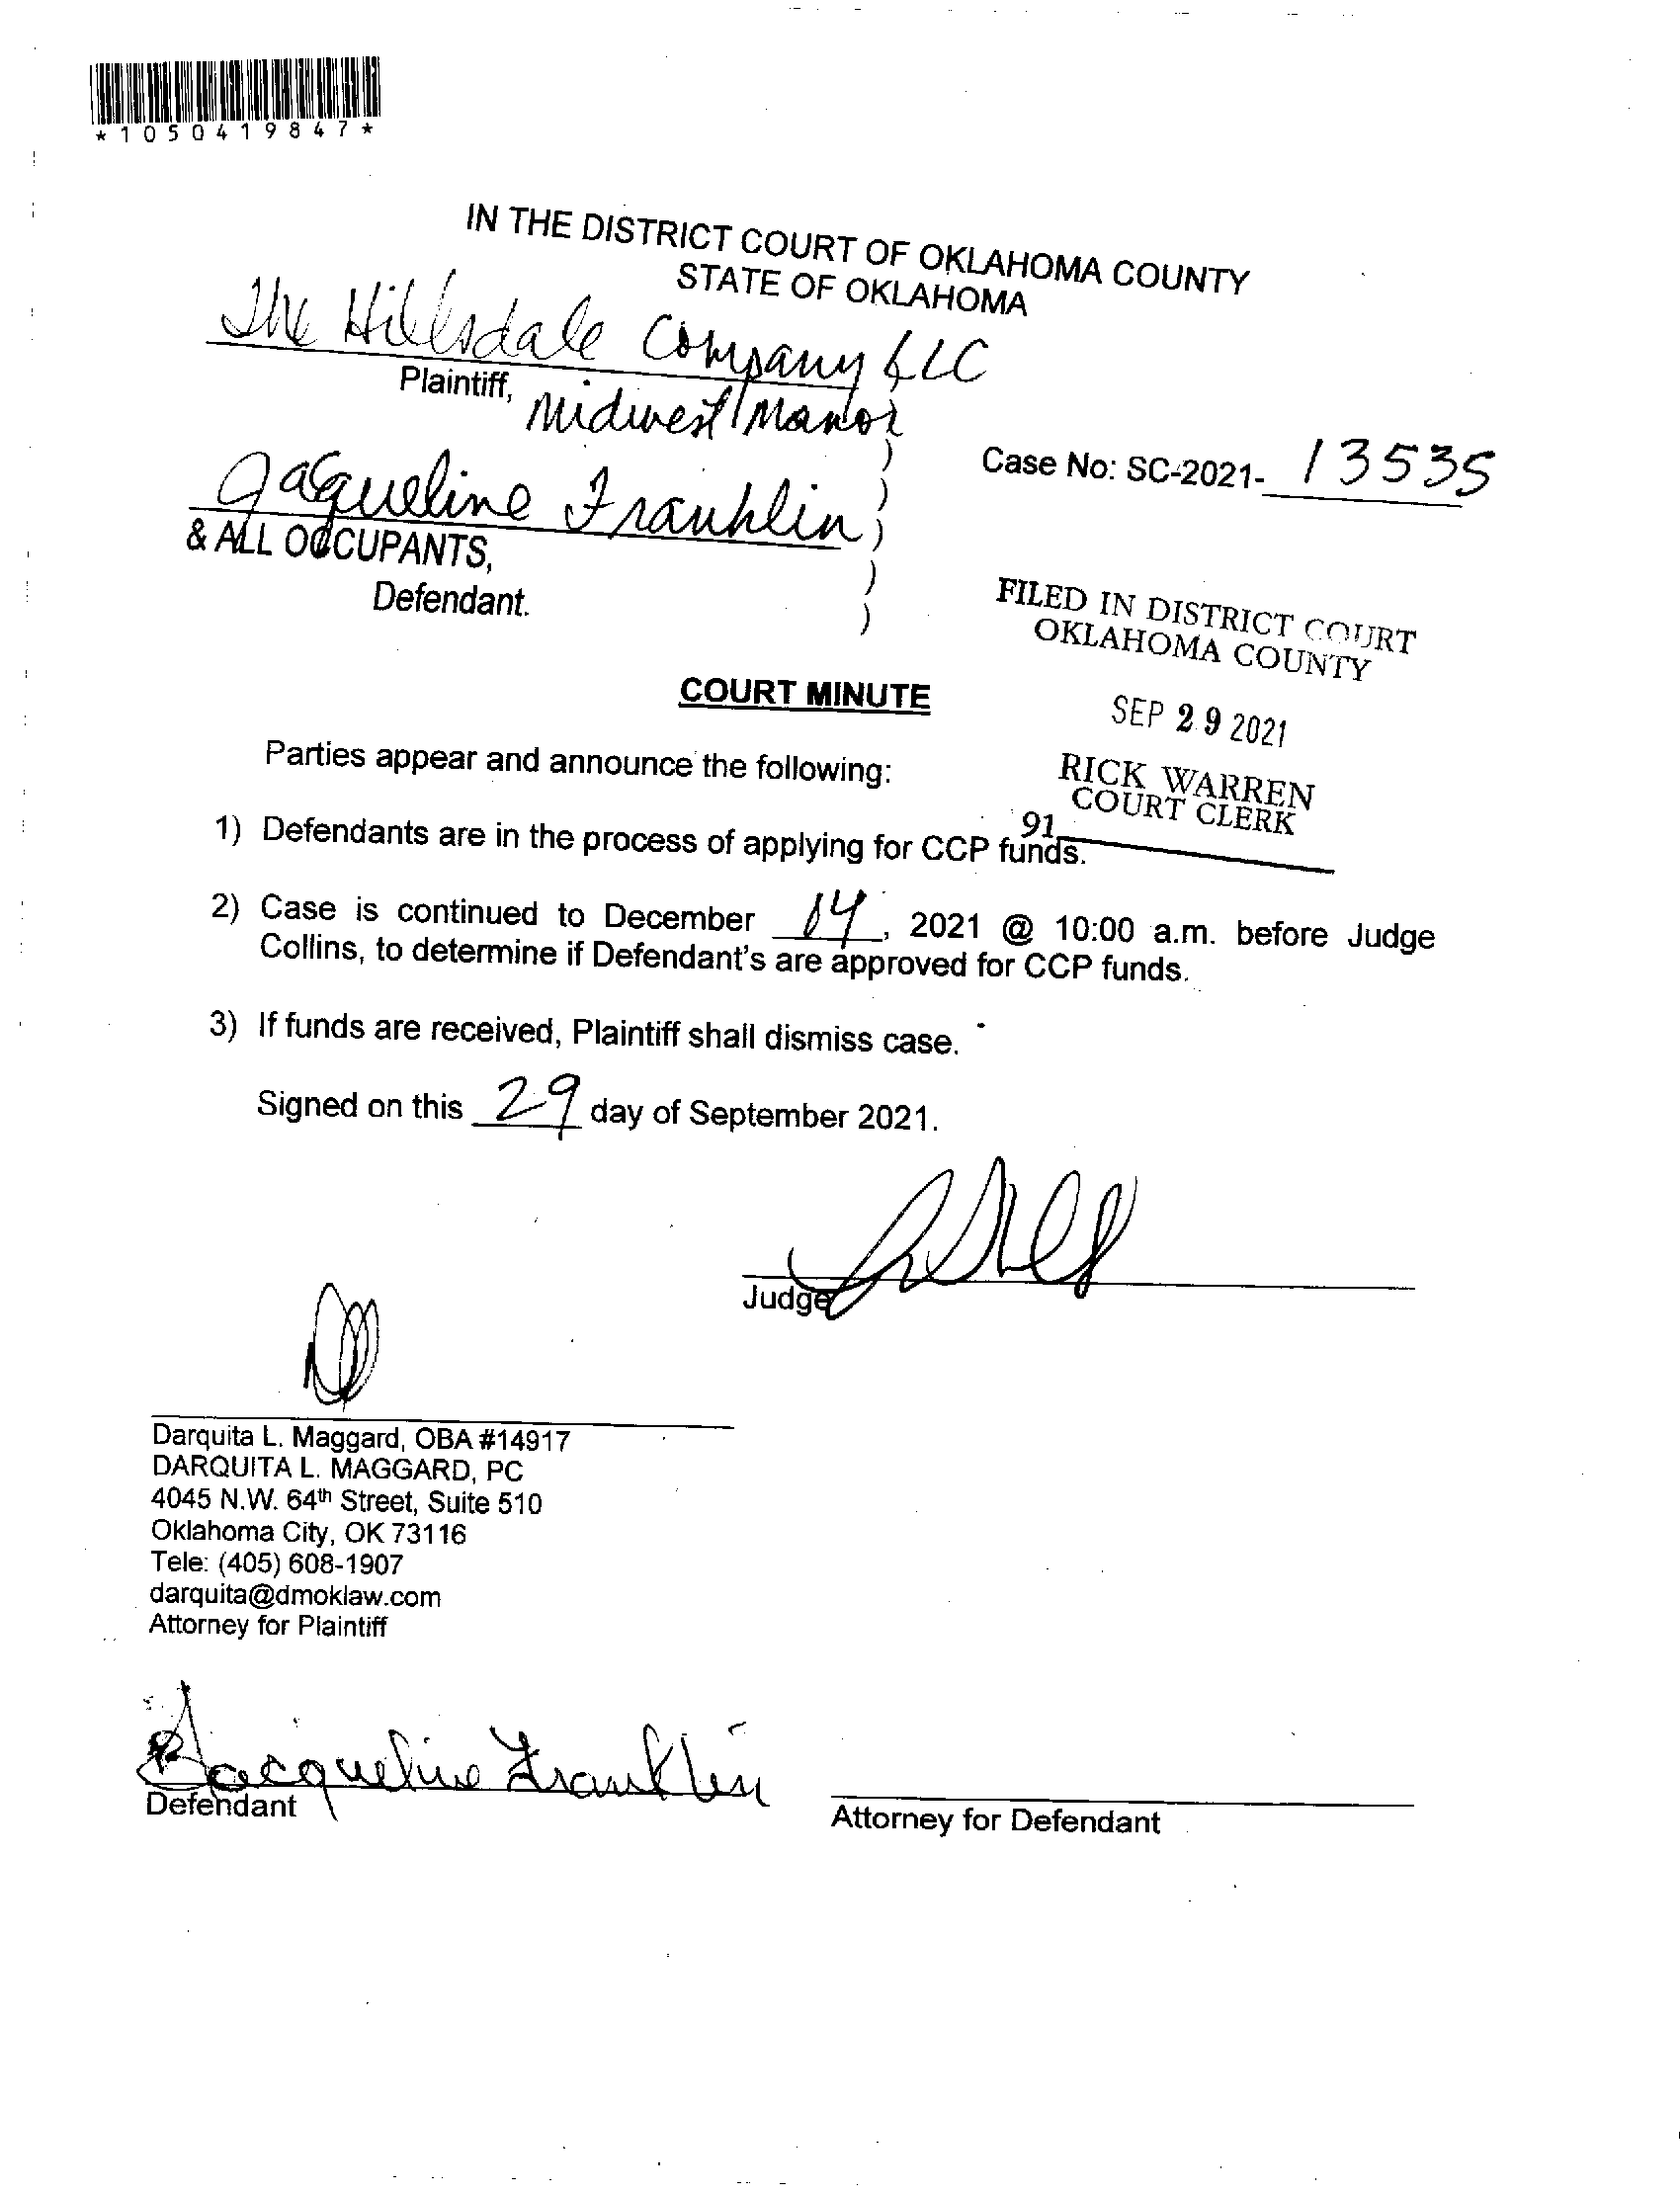 *1050419847*
IN THE DISTRICT COURT OF OKLAHOMA COUNTY
STATE OF OKLAHOMA
The Hillsdale Company LLC
Plaintiff,
Midwest Manor
)
Case No: SC-2021- 13535
)
Jacqueline Franklin
)
& ALL OCCUPANTS,
)
Defendant.
)
FILED IN DISTRICT COURT
OKLAHOMA COUNTY
COURT MINUTE
SEP 29 2021
Parties appear and announce the following:
RICK WARREN
COURT CLERK
91
1) Defendants are in the process of applying for CCP funds.
2) Case is continued to December 14, 2021 @ 10:00 a.m. before Judge
Collins, to determine if Defendant's are approved for CCP funds.
3) If funds are received, Plaintiff shall dismiss case.
Signed on this 29 day of September 2021.
Judge
Darquita L. Maggard, OBA #14917
DARQUITA L. MAGGARD, PC
4045 N.W. 64th Street, Suite 510
Oklahoma City, OK 73116
Tele: (405) 608-1907
darquita@dmoklaw.com
Attorney for Plaintiff
Jacqueline Franklin
Defendant
Attorney for Defendant